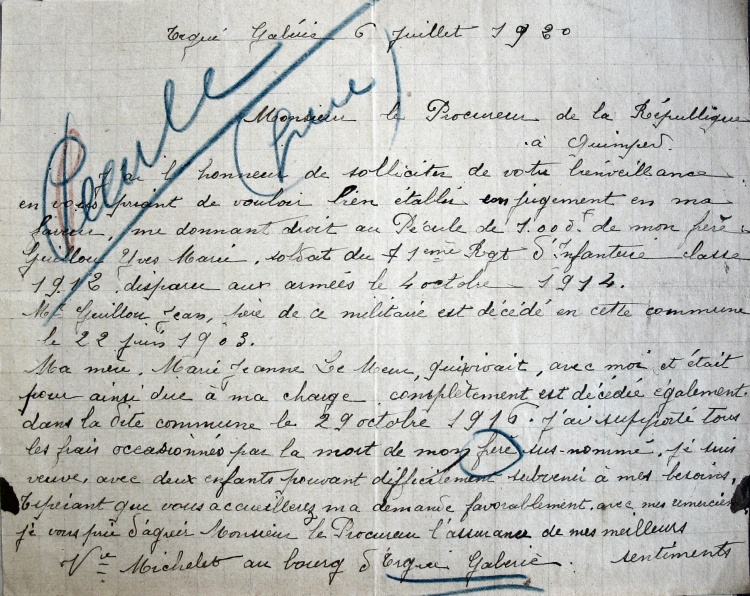 Ergué Gabéric 6 Juillet 1920
Pécule
(frère)
Monsieur le Procureur de la République
à Quimper.
J'ai l'honneur de solliciter de votre bienveillance
en vous priant de vouloir bien établir un jugement en ma
faveur, me donnant droit au Pécule de 1.000f de mon frère
Guillou Yves Marie, soldat du 71eme Regt d'Infanterie classe
1912, disparu aux armées le 4 octobre 1914.
Mr Guillou Jean, père de ce militaire est décédé en cette commune
le 22 juin 1903.
Ma mère, Marie Jeanne Le Meur, qui vivait, avec moi et était
pour ainsi dire à ma charge complètement est décédée également
dans la dite commune le 29 octobre 1916. J'ai supporté tous
les frais occasionnés par la mort de mon frère sus-nommé, je suis
veuve, avec deux enfants pouvant difficilement subvenir à mes besoins,
Espérant que vous accueillerez ma demande favorablement, avec mes remerciements
je vous prie d'agréer Monsieur le Procureur l'assurance de mes meilleurs
sentiments
Vve Michelet au bourg d'Ergué Gabéric.